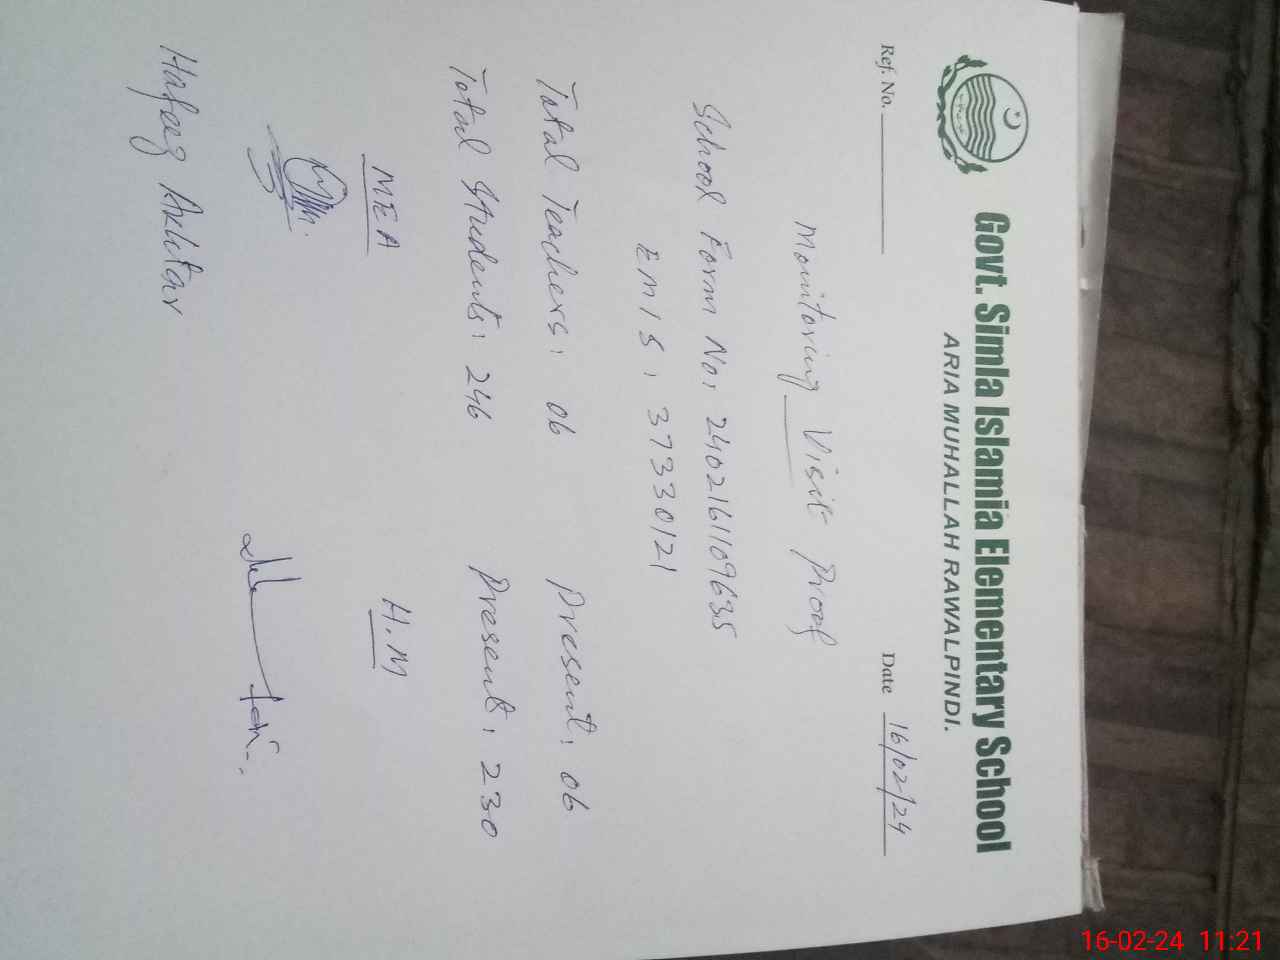 Govt. Simla Islamia Elementary School
ARIA MUHALLAH RAWALPINDI.
Ref. No. Date 16/02/24
Monitoring Visit Proof
School Form No: 2402161109635
EMIS: 37330121
Total Teachers: 06 Present: 06
Total Students: 246 Present: 230
MEA H.M
Hafeez Akhtar
16-02-24 11:21